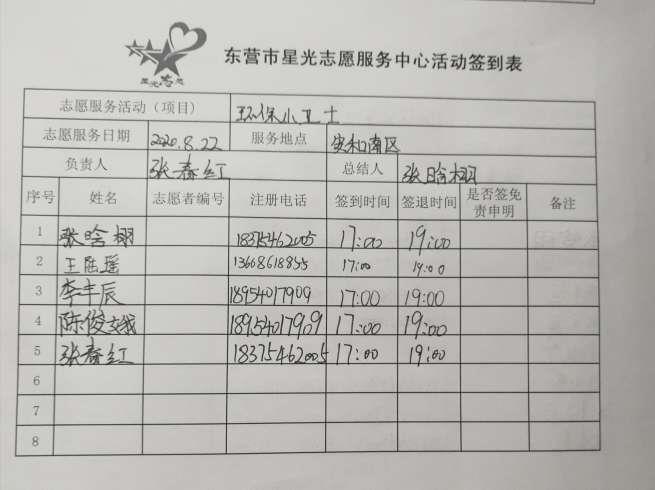 星光志愿
东营市星光志愿服务中心活动签到表
志愿服务活动（项目） 环保小卫士
志愿服务日期 2020.8.22 服务地点 安和南区
负责人 张春红 总结人 张晗栩
序号 姓名 志愿者编号 注册电话 签到时间 签退时间 是否签免责申明 备注
1 张晗栩 18375462005 17:00 19:00
2 王陆瑶 13608618855 17:00 19:00
3 李丰辰 18954017909 17:00 19:00
4 陈俊娥 18954017909 17:00 19:00
5 张春红 18375462005 17:00 19:00
6
7
8